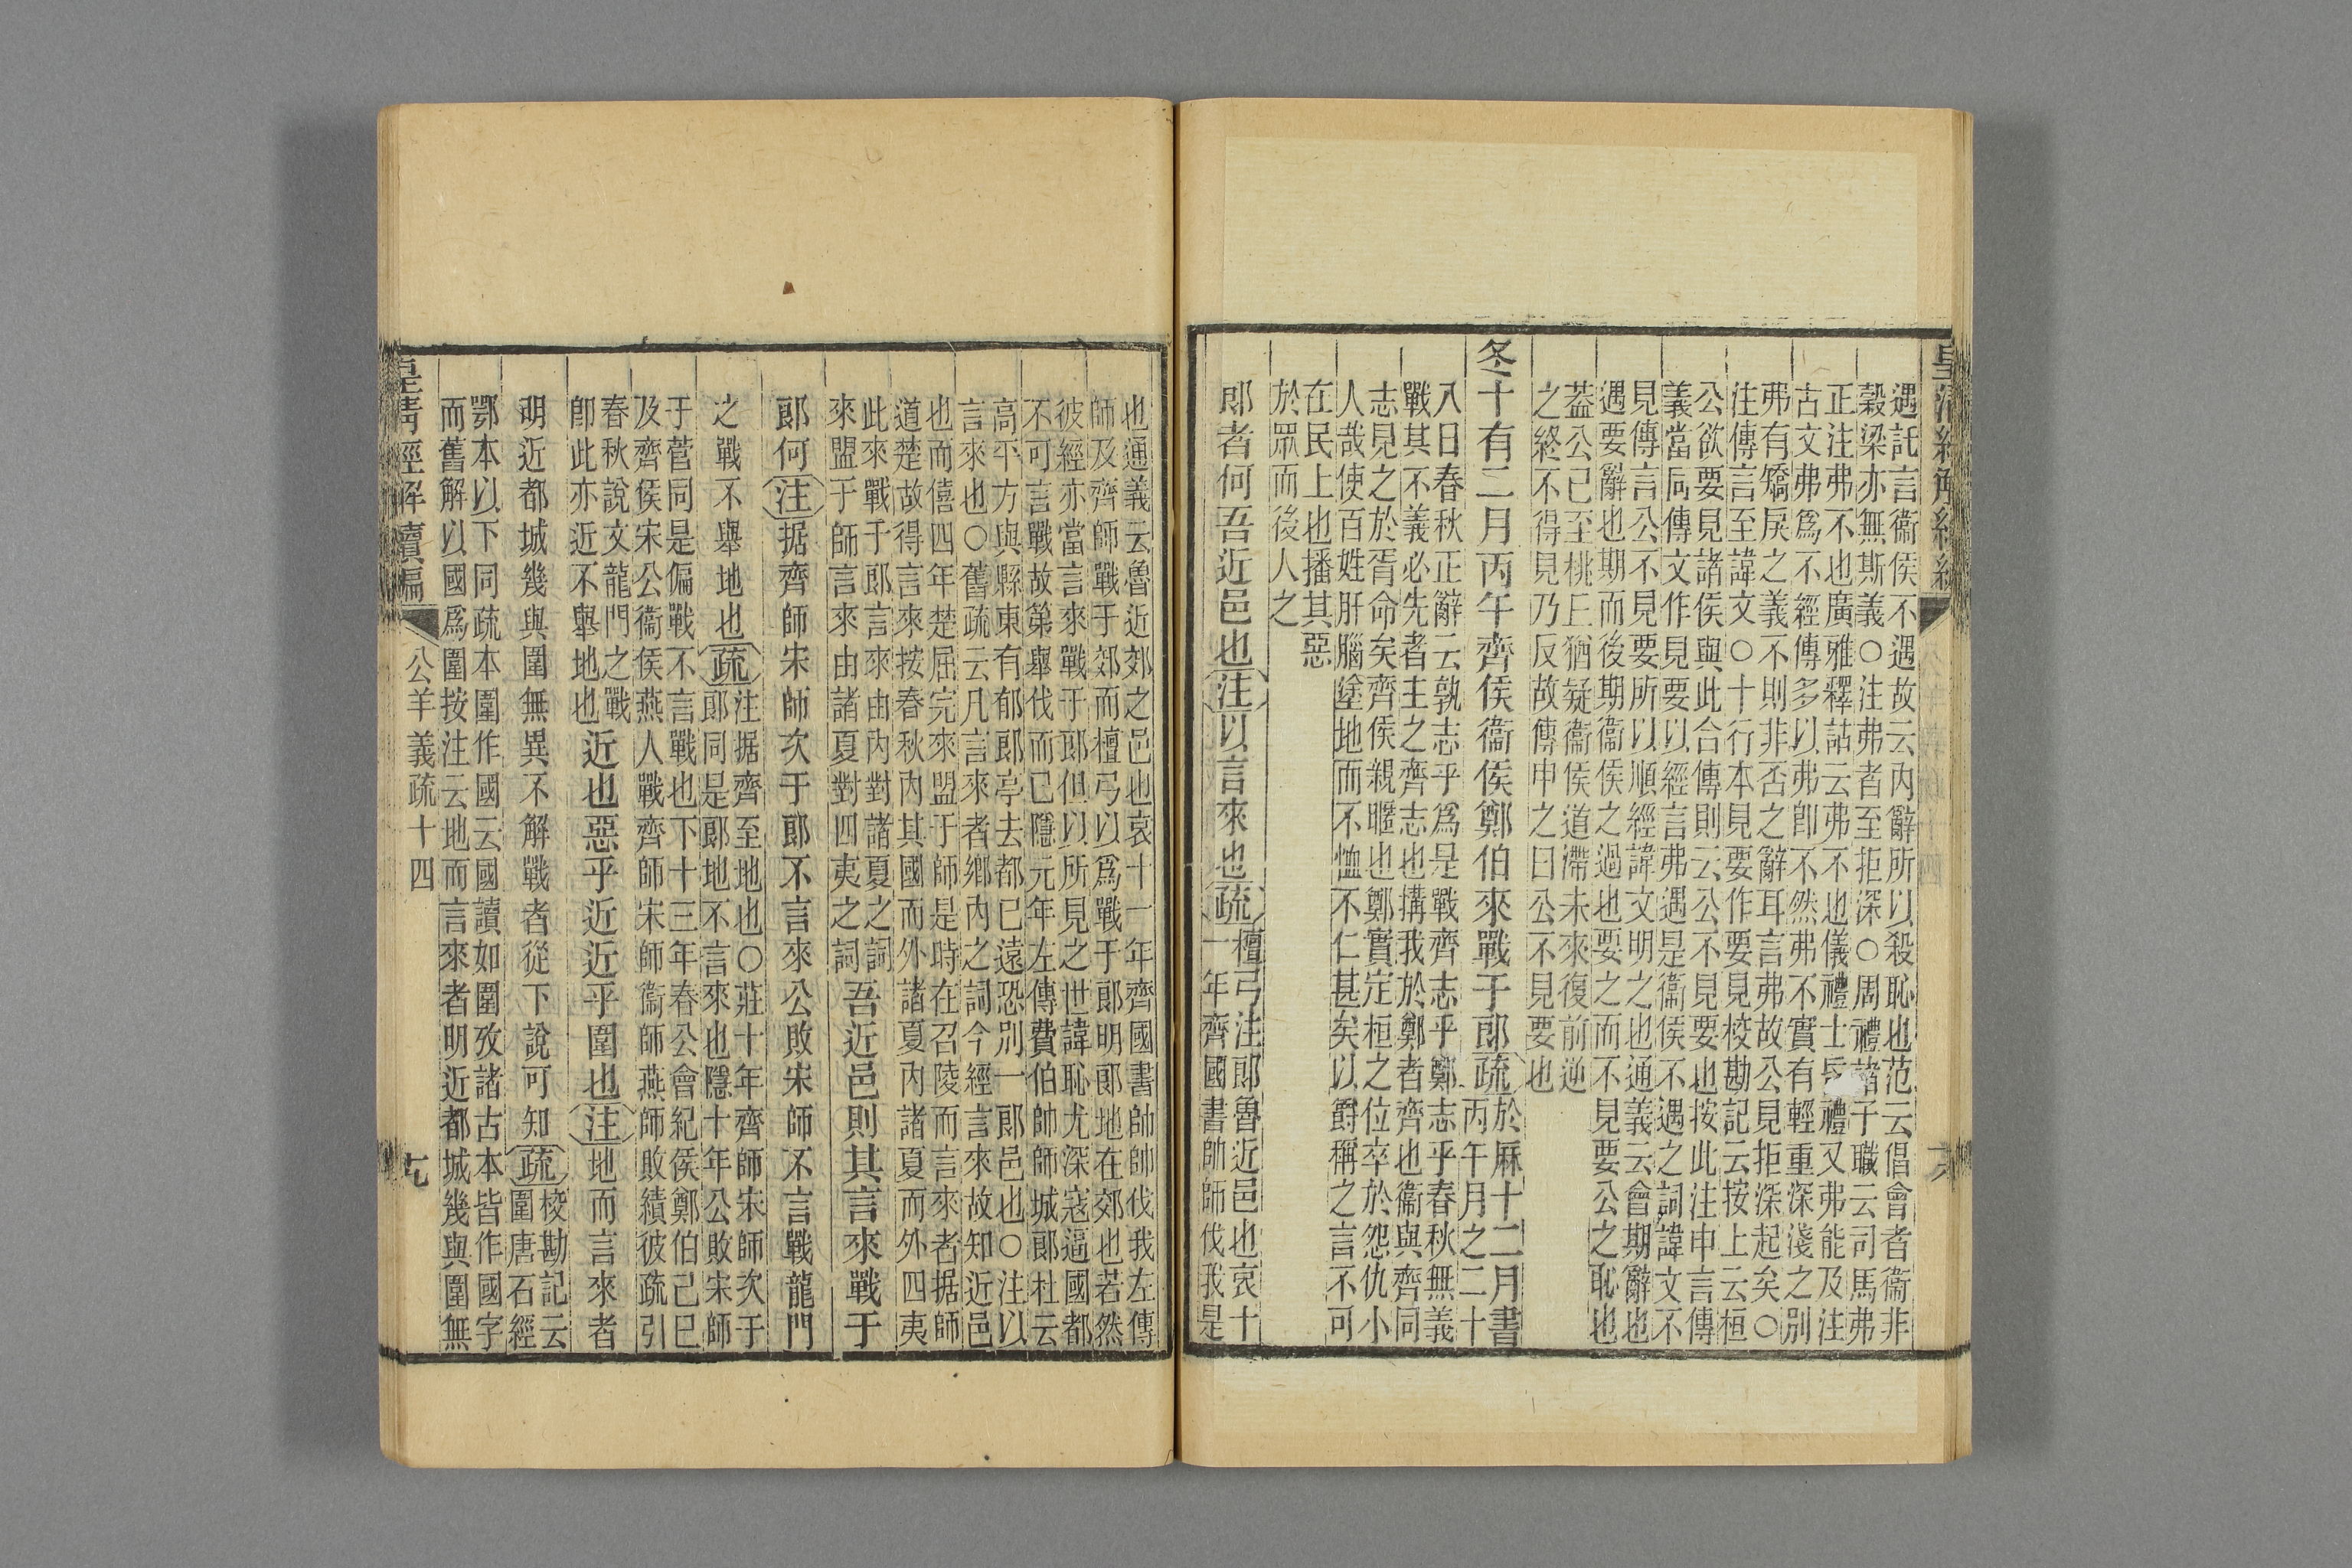 遇託言衞侯不遇故云內辭所以殺恥也范云倡會者衞非
穀梁亦無斯義○注弗者至拒深○周禮諸子職云司馬弗
正注弗不也廣雅釋詁云弗不也儀禮士昏禮又弗能及注
古文弗爲不經傳多以弗卽不然弗不實有輕重深淺之別
弗有矯戾之義不則非否之辭耳言弗故公見拒深起矣○
注傳言至諱文○十行本見要作要見校勘記云按上云桓
公欲要見諸侯與此合傳則云公不見要也按此注申言傳
義當同傳文作見要以經言弗遇是衞侯不遇之詞諱文不
見傳言公不見要所以順經諱文明之也通義云會期辭也
遇要辭也期而後期衞侯之過也要之而不見要公之恥也
葢公已至桃丘猶疑衞侯道滯未來復前逆
之終不得見乃反故傳申之曰公不見要也
冬十有二月丙午齊侯衞侯鄭伯來戰于郎疏
於厤十二月書
丙午月之二十
八日春秋正辭云孰志乎爲是戰齊志乎鄭志乎春秋無義
戰其不義必先者主之齊志也搆我於鄭者齊也衞與齊同
志見之於胥命矣齊侯親暱也鄭實定桓之位卒於怨仇小
人哉使百姓肝腦塗地而不恤不仁甚矣以爵稱之言不可
在民上也播其惡
於眾而後人之
郎者何吾近邑也注以言來也疏
檀弓注郎魯近邑也哀十
一年齊國書帥師伐我是
也通義云魯近郊之邑也哀十一年齊國書帥師伐我左傳
師及齊師戰于郊而檀弓以爲戰于郎明郎地在郊也若然
彼經亦當言來戰于郎但以所見之世諱恥尤深寇逼國都
不可言戰故第舉伐而已隱元年左傳費伯帥師城郎杜云
高平方與縣東有郁郎亭去都已遠恐別一郎邑也○注以
言來也○舊疏云凡言來者鄉內之詞今經言來故知近邑
也而僖四年楚屈完來盟于師是時在召陵而言來者据師
道楚故得言來按春秋內其國而外諸夏內諸夏而外四夷
此來戰于郎言來由內對諸夏之詞
來盟于師言來由諸夏對四夷之詞
吾近邑則其言來戰于
郎何注据齊師宋師次于郎不言來公敗宋師不言戰龍門
之戰不舉地也疏
注据齊至地也○莊十年齊師宋師次于
郎同是郎地不言來也隱十年公敗宋師
于菅同是偏戰不言戰也下十三年春公會紀侯鄭伯己巳
及齊侯宋公衞侯燕人戰齊師宋師衞師燕師敗績彼疏引
春秋說文龍門之戰
卽此亦近不舉地也
近也惡乎近近乎圍也注地而言來者
明近都城幾與圍無異不解戰者從下說可知疏
校勘記云
圍唐石經
鄂本以下同疏本圍作國云國讀如圍攷諸古本皆作國字
而舊解以國爲圍按注云地而言來者明近都城幾與圍無
皇清經解續編
公羊義疏十四